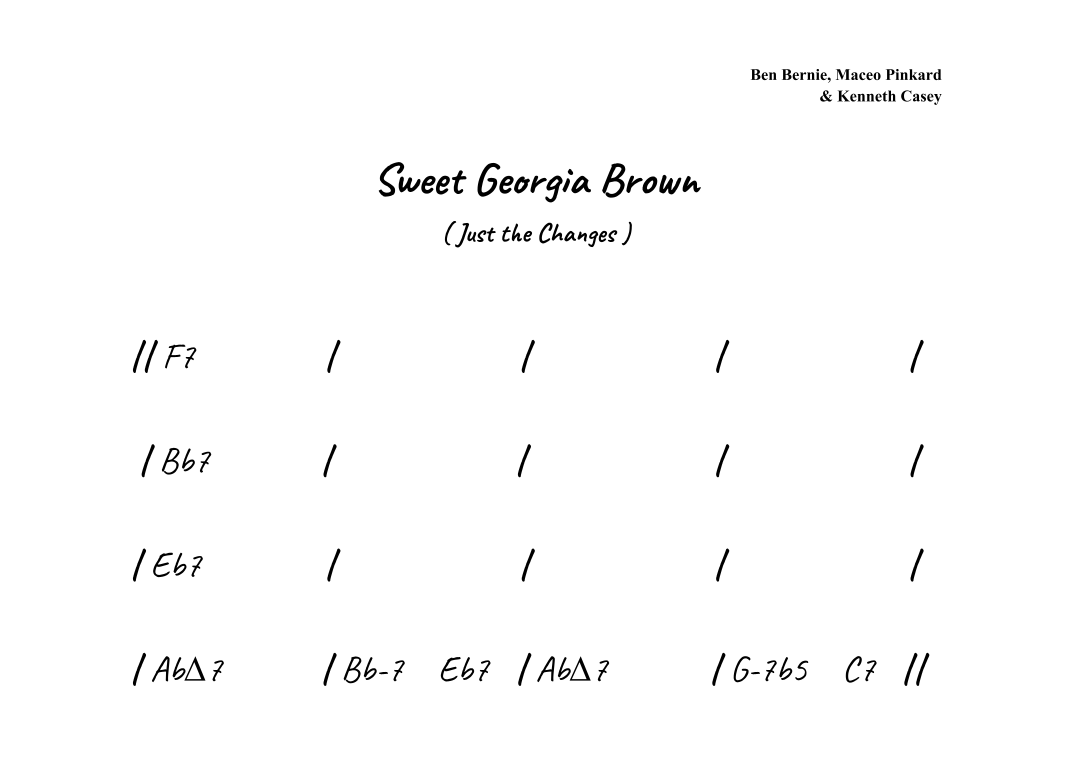 Ben Bernie, Maceo Pinkard
& Kenneth Casey
Sweet Georgia Brown
( Just the Changes )
// F7 / / / /
/ Bb7 / / / /
/ Eb7 / / / /
/ Ab∆7 / Bb-7 Eb7 / Ab∆7 / G-7b5 C7 //